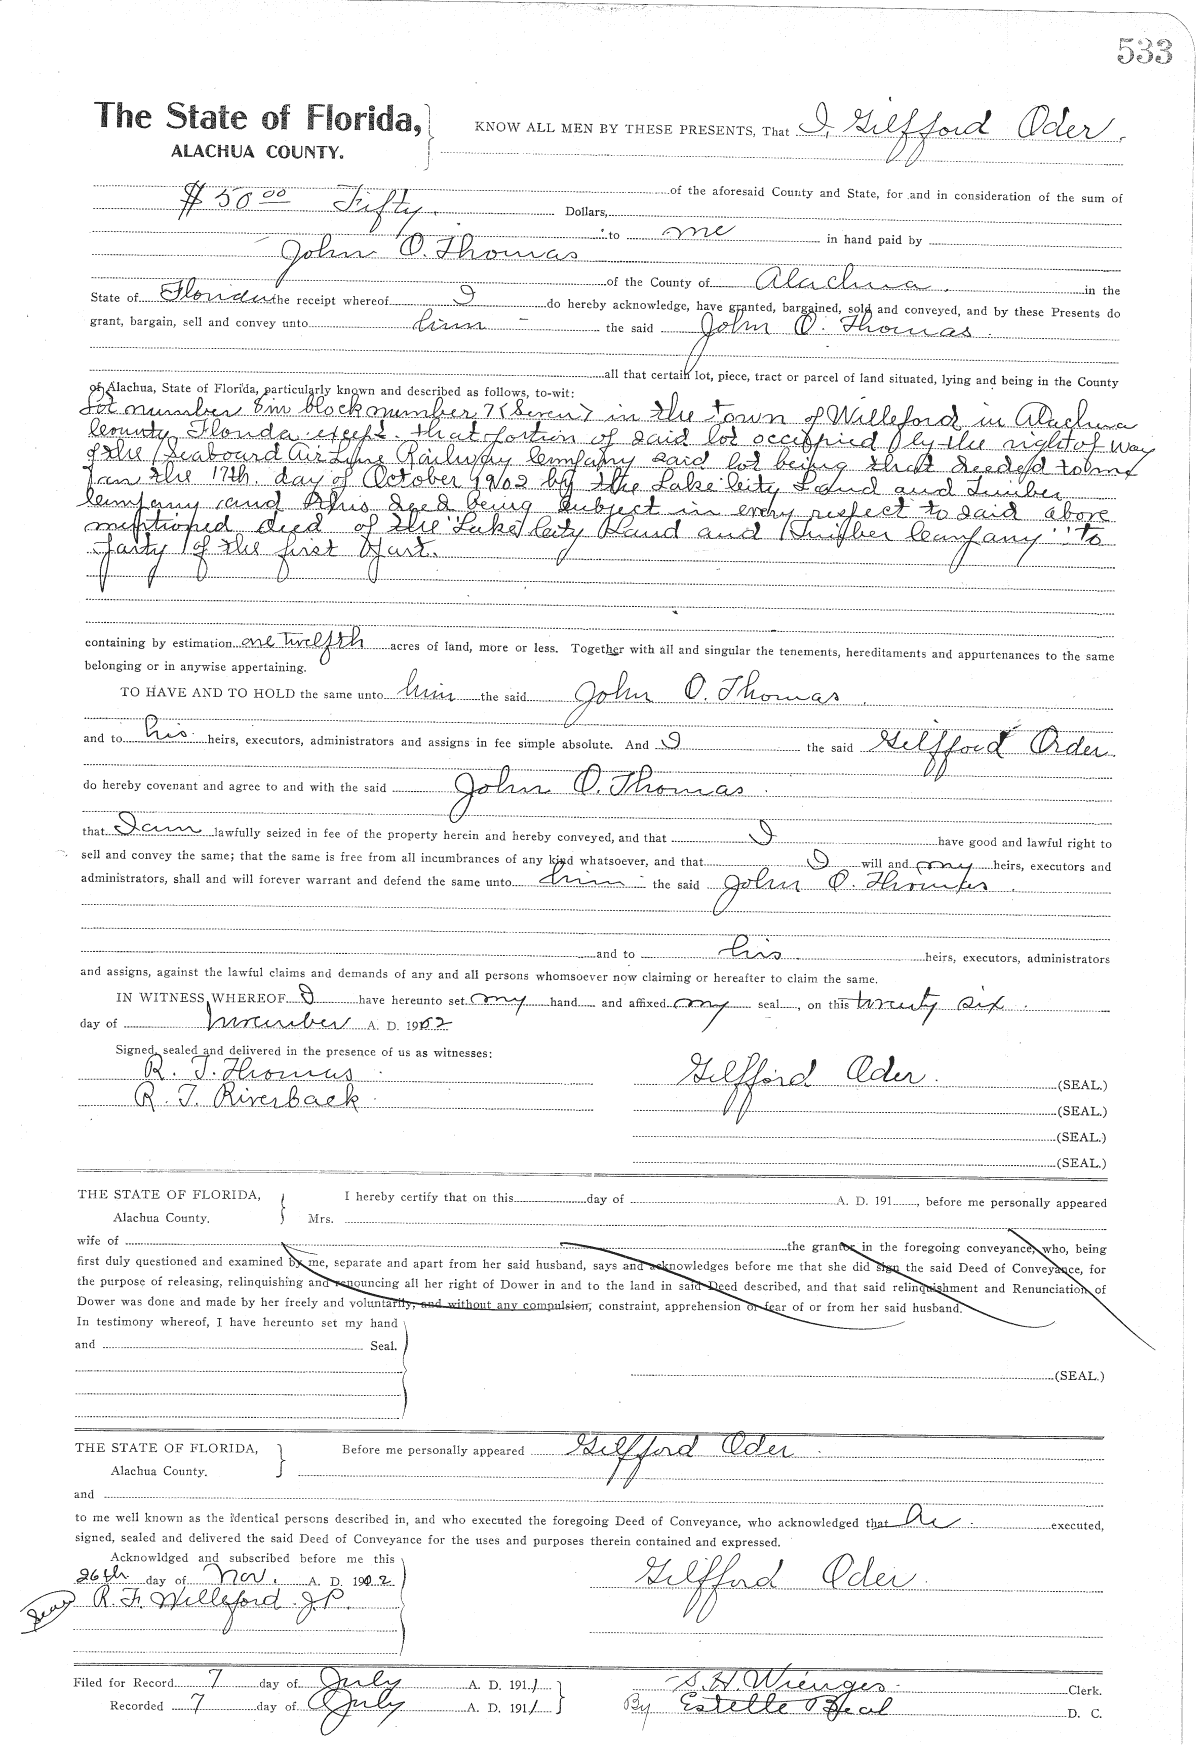 533
The State of Florida,
ALACHUA COUNTY.
KNOW ALL MEN BY THESE PRESENTS, That I, Gilfford Oder.
of the aforesaid County and State, for and in consideration of the sum of
$50 00 Fifty. Dollars,
to me in hand paid by
John O. Thomas
of the County of Alachua. in the
State of Florida the receipt whereof I do hereby acknowledge, have granted, bargained, sold and conveyed, and by these Presents do
grant, bargain, sell and convey unto him the said John O. Thomas.
all that certain lot, piece, tract or parcel of land situated, lying and being in the County
of Alachua, State of Florida, particularly known and described as follows, to-wit:
Lot number 8 in block number 7 (Seven) in the town of Willeford in Alachua
County, Florida except that portion of said lot occupied by the right of way
of the Seaboard Air Line Railway Company said lot being that deeded to me
on the 17th. day of October 1902 by the Lake City Land and Timber
Company and this deed being subject in every respect to said above
mentioned deed of the Lake City Land and Timber Company to
party of the first part.
containing by estimation one twelfth acres of land, more or less. Together with all and singular the tenements, hereditaments and appurtenances to the same
belonging or in anywise appertaining.
TO HAVE AND TO HOLD the same unto him the said John O. Thomas
and to his heirs, executors, administrators and assigns in fee simple absolute. And I the said Gilfford Order
do hereby covenant and agree to and with the said John O. Thomas.
that I am lawfully seized in fee of the property herein and hereby conveyed, and that I have good and lawful right to
sell and convey the same; that the same is free from all incumbrances of any kind whatsoever, and that I will and my heirs, executors and
administrators, shall and will forever warrant and defend the same unto him the said John O. Thomas.
and to his heirs, executors, administrators
and assigns, against the lawful claims and demands of any and all persons whomsoever now claiming or hereafter to claim the same.
IN WITNESS WHEREOF I have hereunto set my hand and affixed my seal, on this twenty six.
day of November A. D. 1902
Signed, sealed and delivered in the presence of us as witnesses:
R. T. Thomas
Gilfford Oder. (SEAL.)
R. T. Riverback
(SEAL.)
(SEAL.)
(SEAL.)
THE STATE OF FLORIDA,
Alachua County.
I hereby certify that on this day of A. D. 191 , before me personally appeared
Mrs.
wife of the grantor in the foregoing conveyance, who, being
first duly questioned and examined by me, separate and apart from her said husband, says and acknowledges before me that she did sign the said Deed of Conveyance, for
the purpose of releasing, relinquishing and renouncing all her right of Dower in and to the land in said Deed described, and that said relinquishment and Renunciation of
Dower was done and made by her freely and voluntarily, and without any compulsion, constraint, apprehension or fear of or from her said husband.
In testimony whereof, I have hereunto set my hand
and Seal.
(SEAL.)
THE STATE OF FLORIDA,
Alachua County.
Before me personally appeared Gilfford Oder
and
to me well known as the identical persons described in, and who executed the foregoing Deed of Conveyance, who acknowledged that he executed,
signed, sealed and delivered the said Deed of Conveyance for the uses and purposes therein contained and expressed.
Acknowldged and subscribed before me this
26th day of Nov. A. D. 1902
Gilfford Oder.
Seal R. F. Willeford J.P.
Filed for Record 7 day of July A. D. 1911
S. H. Wienges Clerk.
Recorded 7 day of July A. D. 1911
By Estelle Beal D. C.